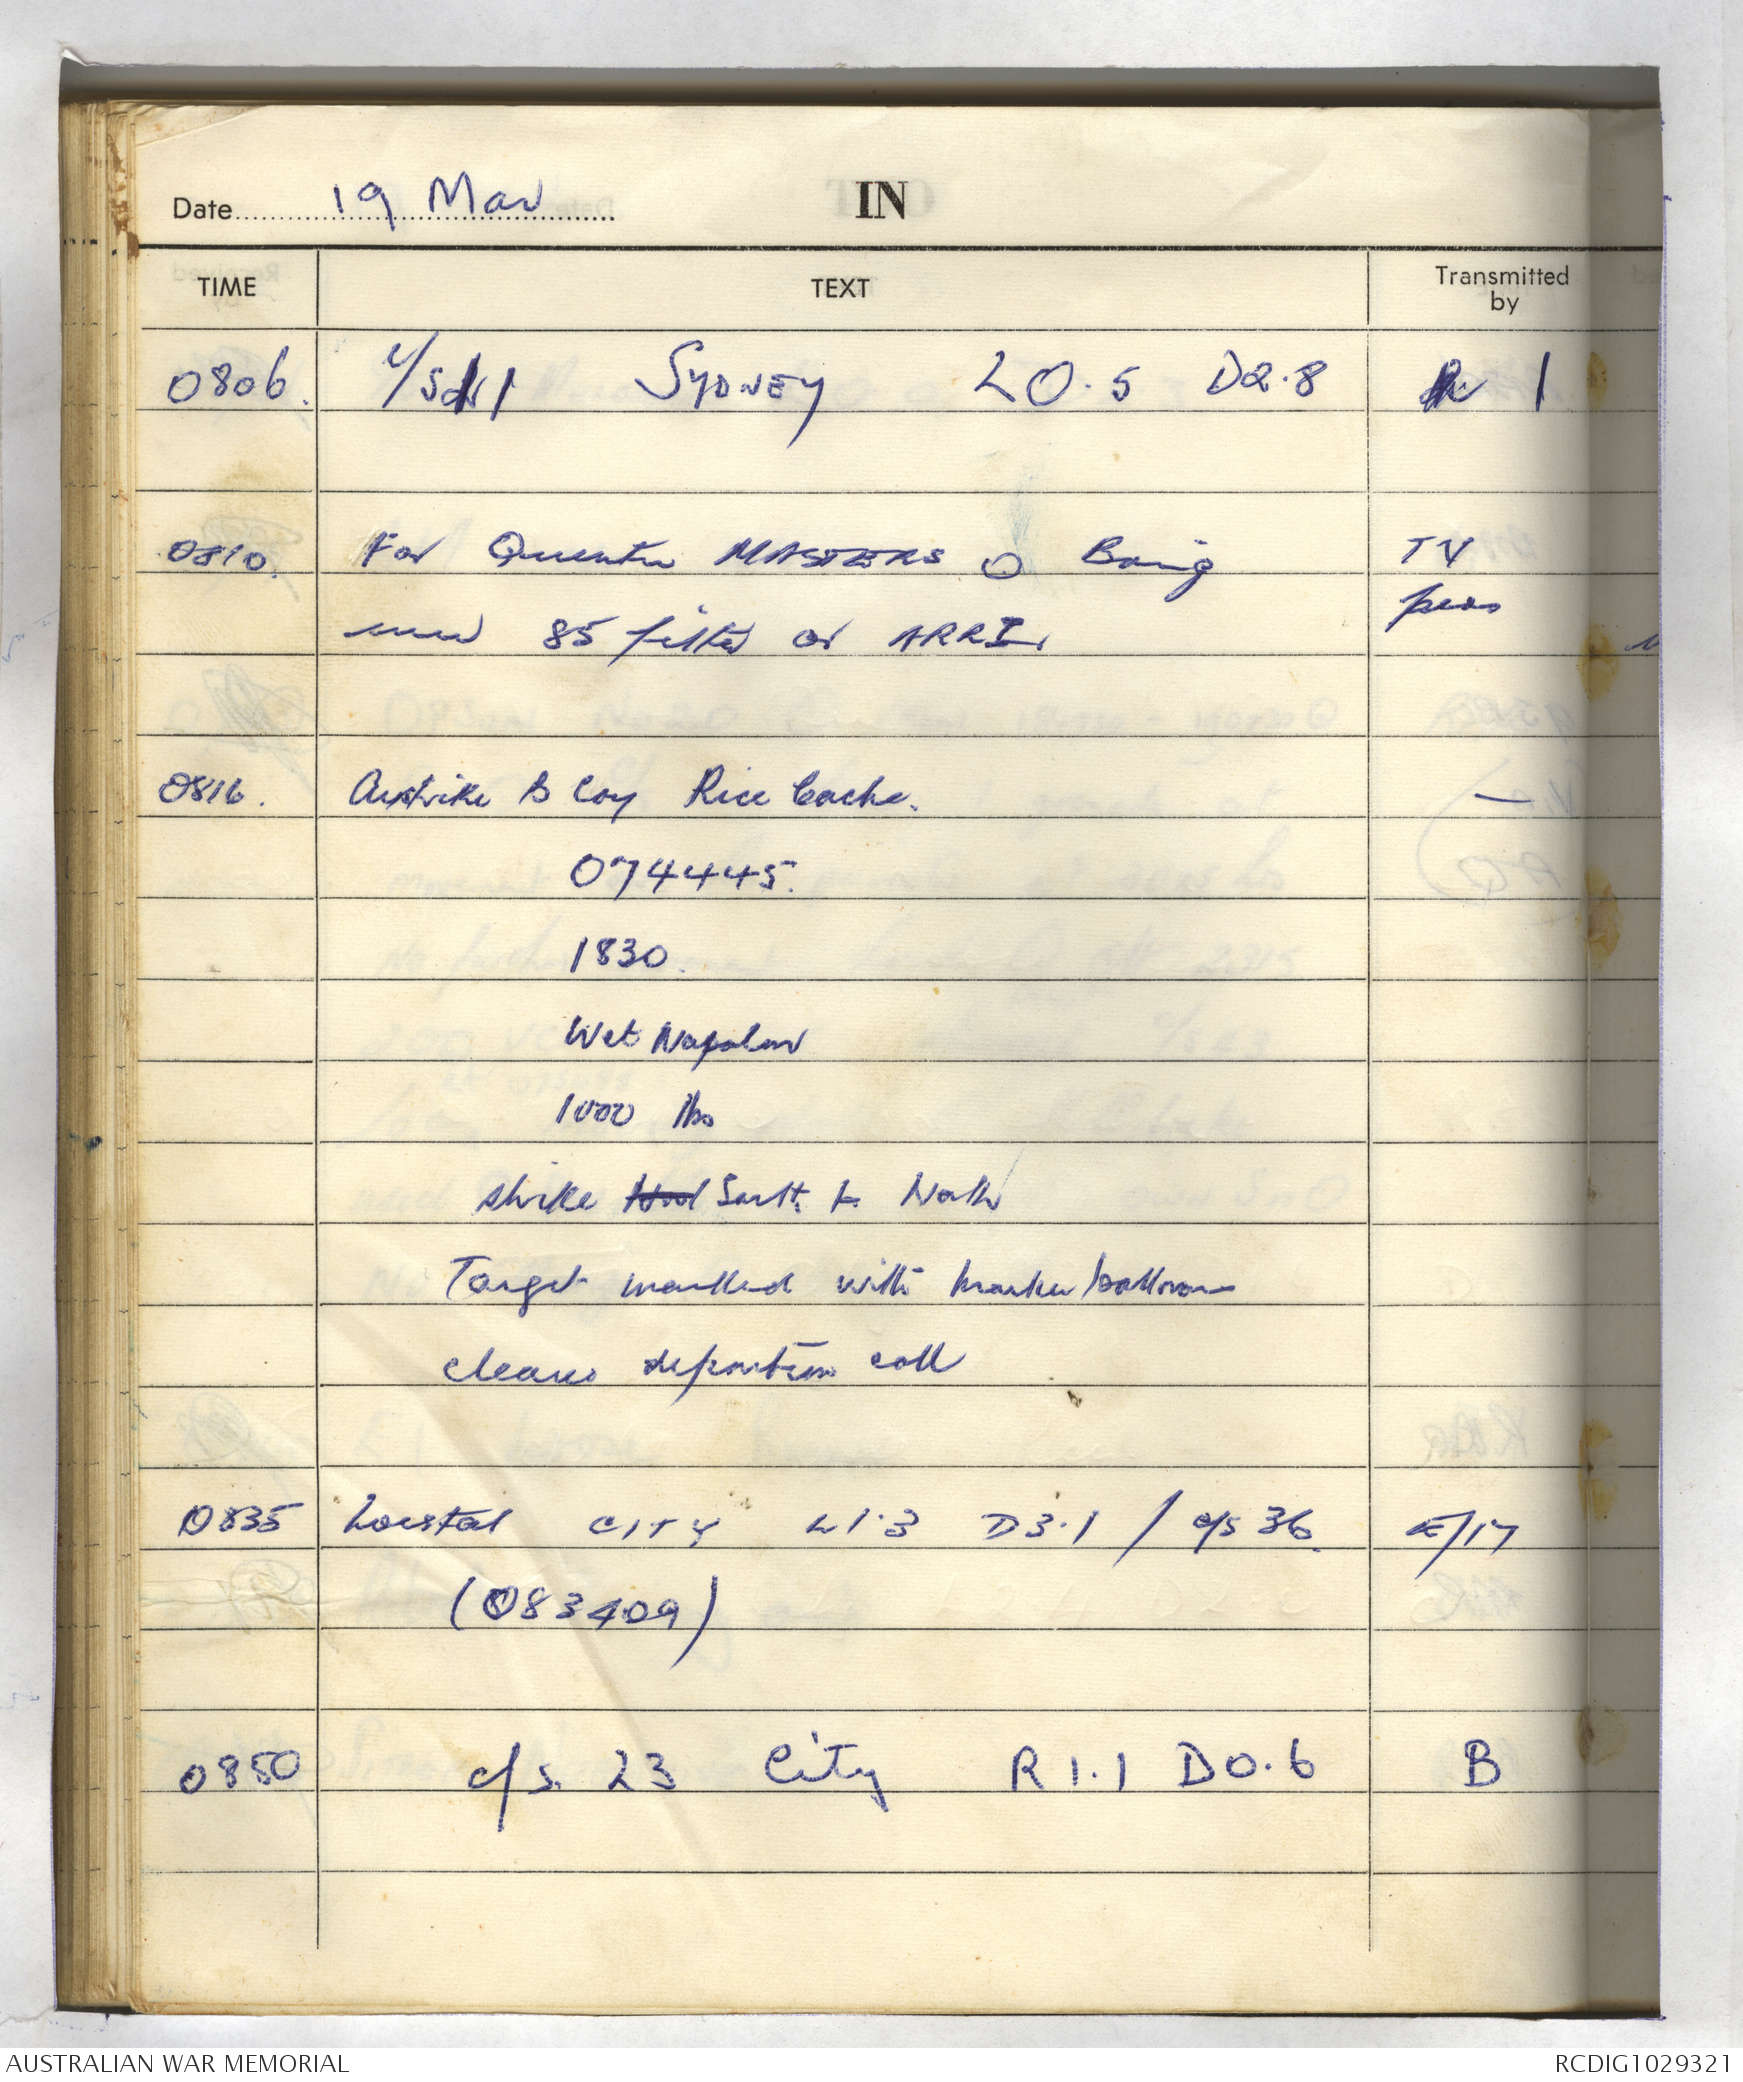 Date 19 Mar
IN
TIME TEXT Transmitted by
0806. c/s 11 SYDNEY L0.5 D2.8 1
0810. For Quentin MASTERS O Bring TV
new 85 filter or ARRI. press
0816. Airstrike B Coy Rice Cache. —
074445.
1830.
Wet Napalm
1000 lbs
strike South to North
Target marked with marker balloons
cleans deposition call
0835 Locstat CITY L1.3 D3.1 / c/s 36. E/17
(083409)
0850 c/s. 23 City R1.1 D0.6 B
AUSTRALIAN WAR MEMORIAL
RCDIG1029321